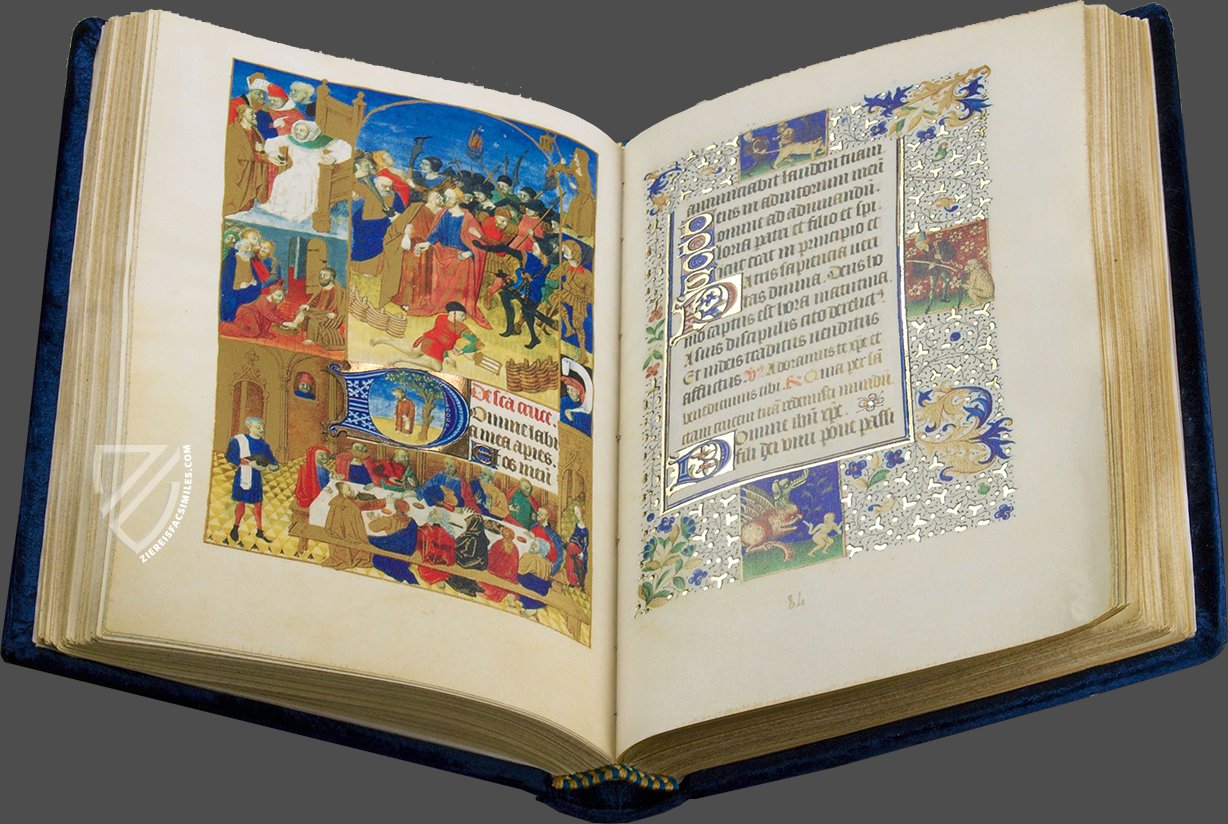 De sca cruce.
Domine labi
a mea apies.
Et os meū
annunciabit laudem tuam.
Deus in adiutorium meū
Domine ad adiuvandū.
Gloria patri et filio et spi
Sicut erat in principio et
Patris sapiencia veri
tas divina. Deus ho
mo captus est hora matutina
A suis discipulis cito derelict⁹
Et iudeis traditus venditus
afflictus. V̷ Adoramus te xpe et
benedicimus tibi. R̷ Quia per sā
ctam crucem tuā redemisti mundū.
Domine ihū xpe.
fili dei vivi pone passi
84
ZIEREISFACSIMILES.COM